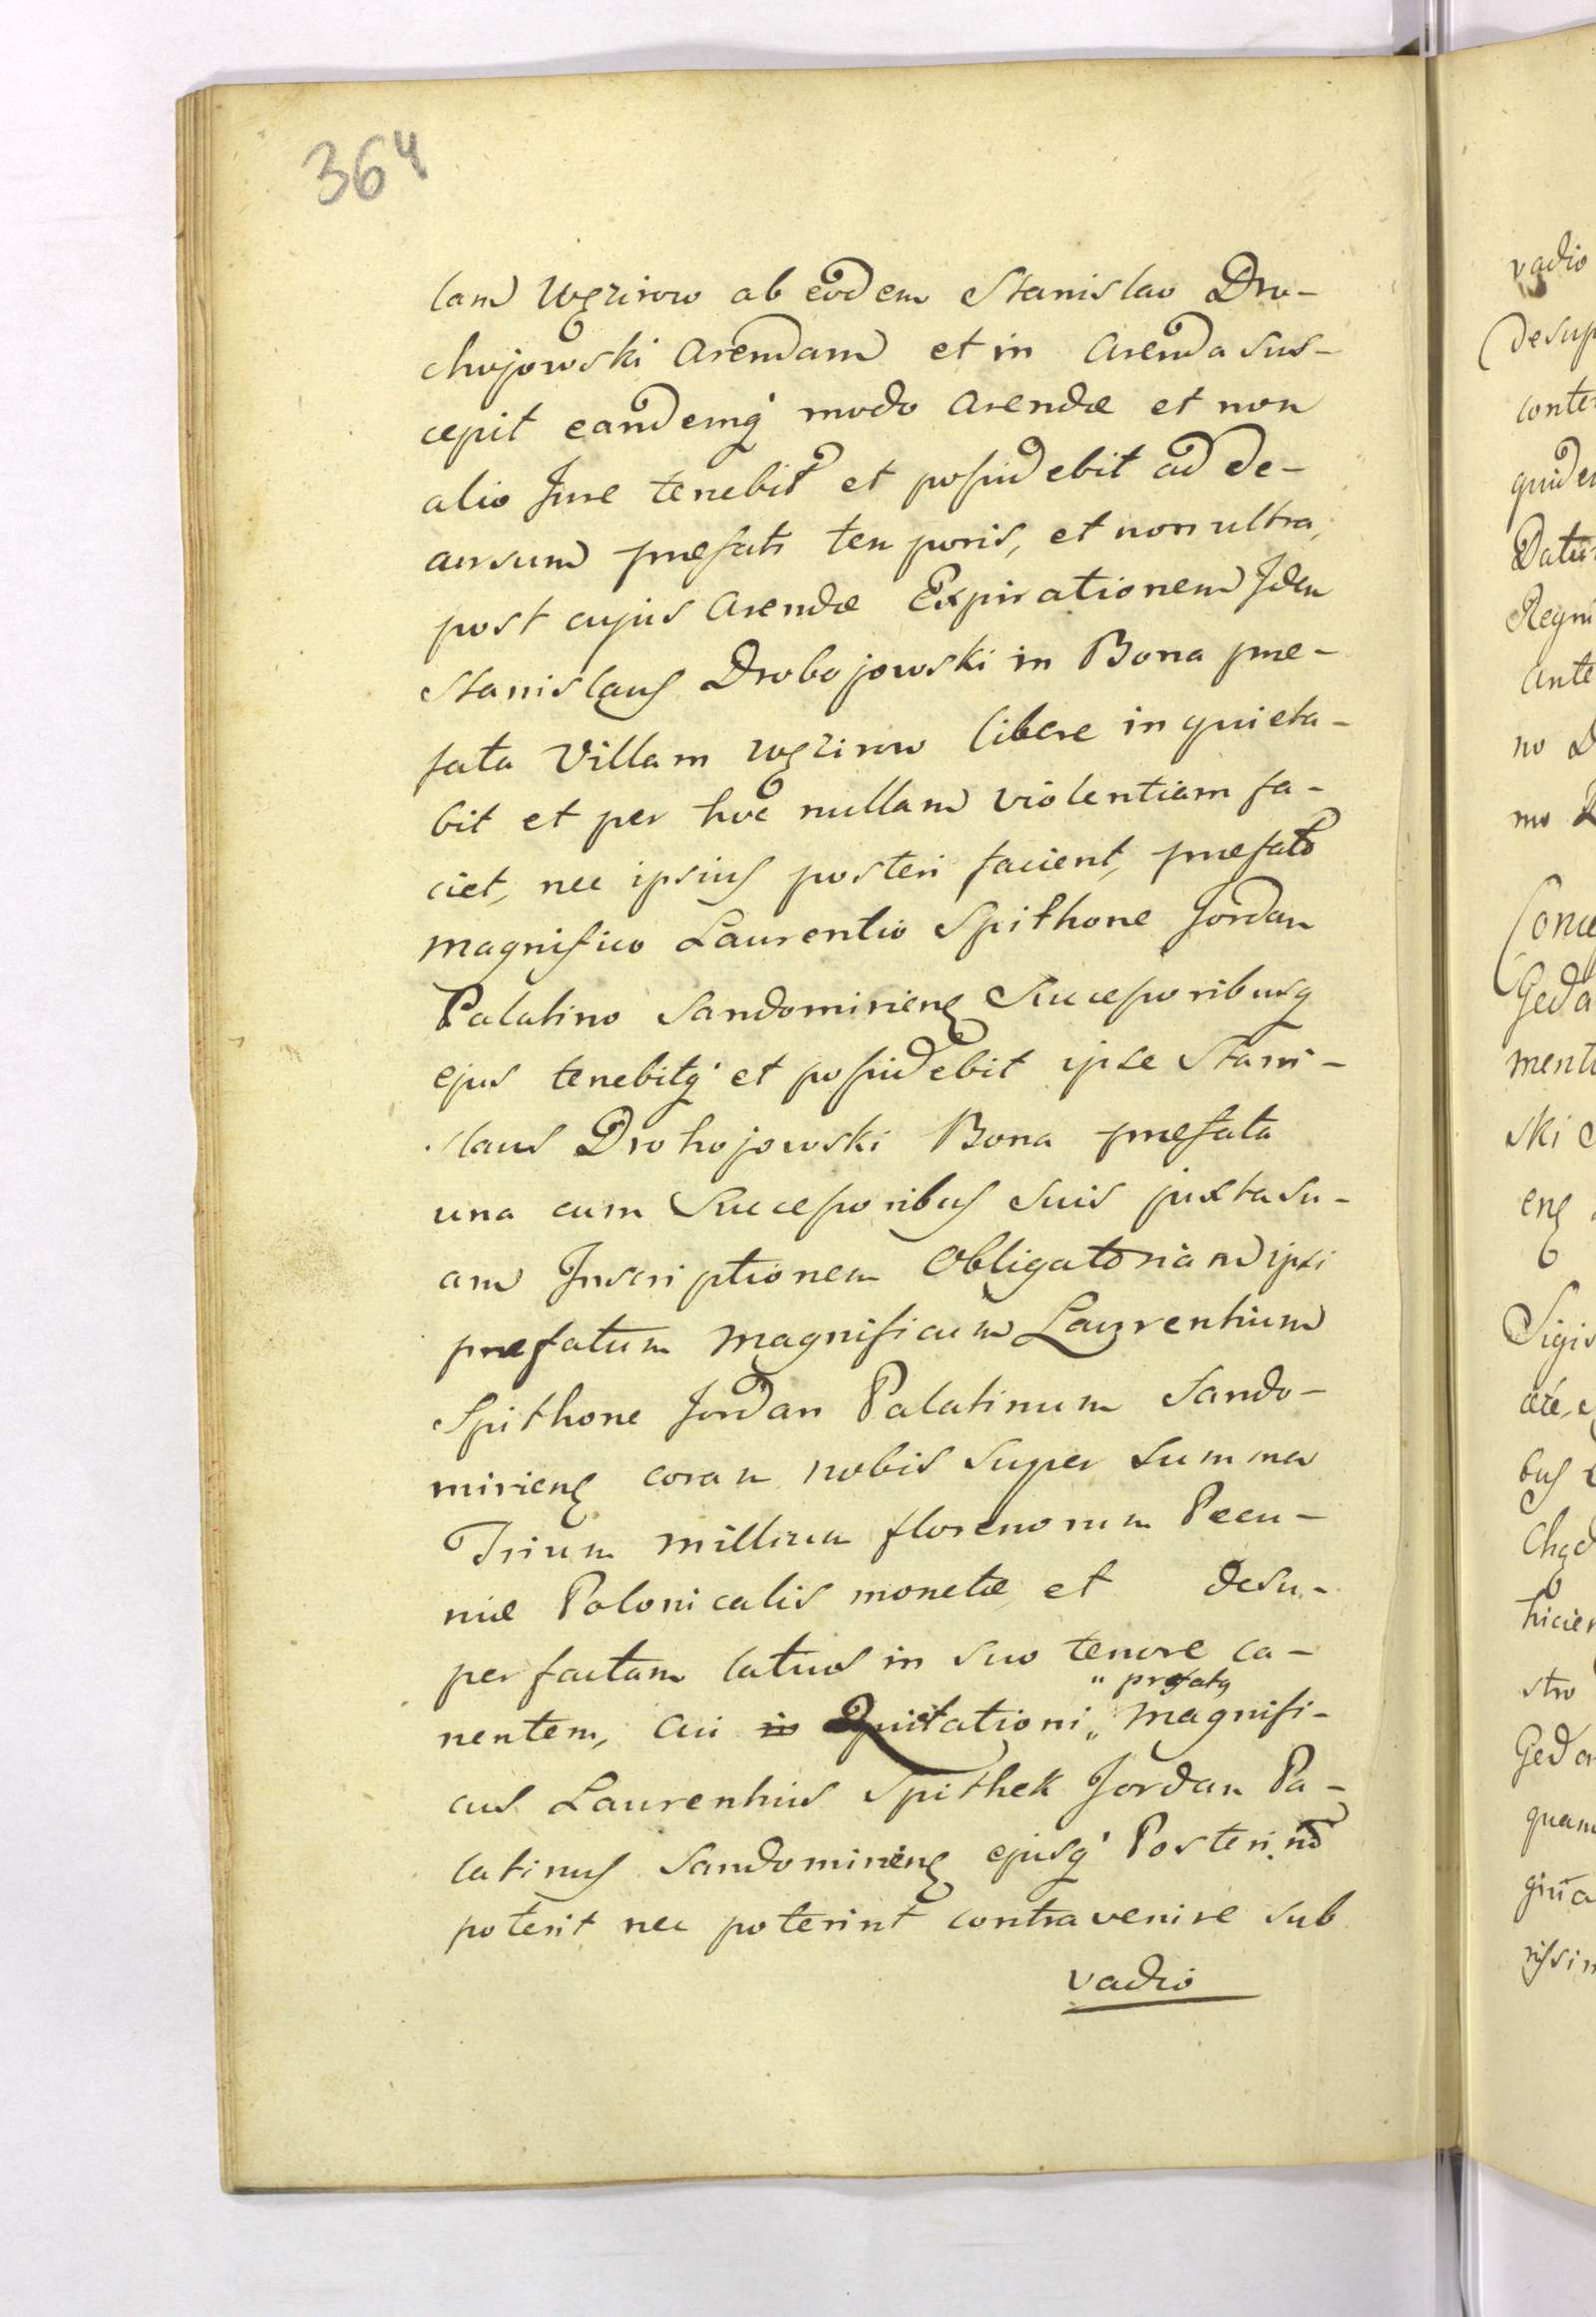 364
lam Węzirow ab eodem Stanislao Dro-
chojowski arendam et in arenda sus-
cepit eandemq' modo arendæ et non
alio Jure tenebit et possidebit ad de-
cursum præfati temporis, et non ultra,
post cujus arendæ Expirationem Idem
Stanislaus Drohojowski in Bona præ-
fata Villam Węzirow libere in quieta-
bit et per hoc nullam violentiam fa-
ciet, nec ipsius posteri facient, præfato
magnifico Laurentio Spithone Jordan
Palatino Sandomirieng Successoribusq
ejus tenebitq' et possidebit ipse Stani-
slaus Drohojowski Bona præfata
una cum Successoribus suis juxta su-
am Inscriptionem Obligatoriam ipsi
præfatum magnificum Laurentium
Spithone Jordan Palatinum Sando-
mirieng coram nobis super summa
Trium millium florenorum Pecu-
niæ Polonicalis monetæ et desu-
per factam latius in suo tenore ca-
nentem, cui Quittationi „ magnifi-
" præfatq
cus Laurentius Spithek Jordan Pa-
latinus Sandomirieng ejusq' Posteri nō
poterit nec poterint contravenire sub
vadio
vadio
conte
Regni
ante
no D
Geda
ski
eng
Sigis
stro
quam